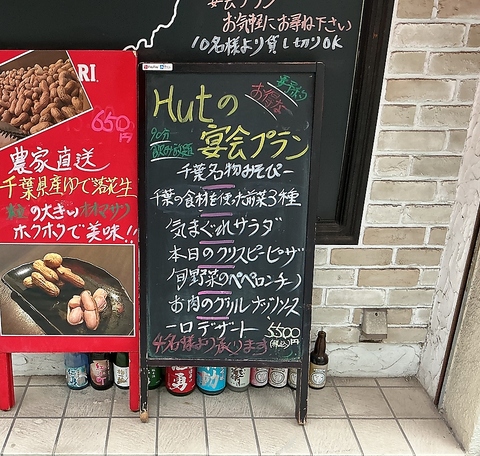 宴会プラン
お気軽にお尋ね下さい
10名様より貸し切りOK
RI.
650
円
農家直送
千葉県産ゆで落花生
粒の大きいオオマサリ
ホクホクで美味!!
お得な
Hutの
90分
飲み放題
宴会プラン
千葉名物みそピー
千葉の食材を使った前菜3種
気まぐれサラダ
本日のクリスピーピザ
旬野菜のペペロンチーノ
お肉のグリルナッツソース
一口デザート 5500円
(税込)
4名様より承ります